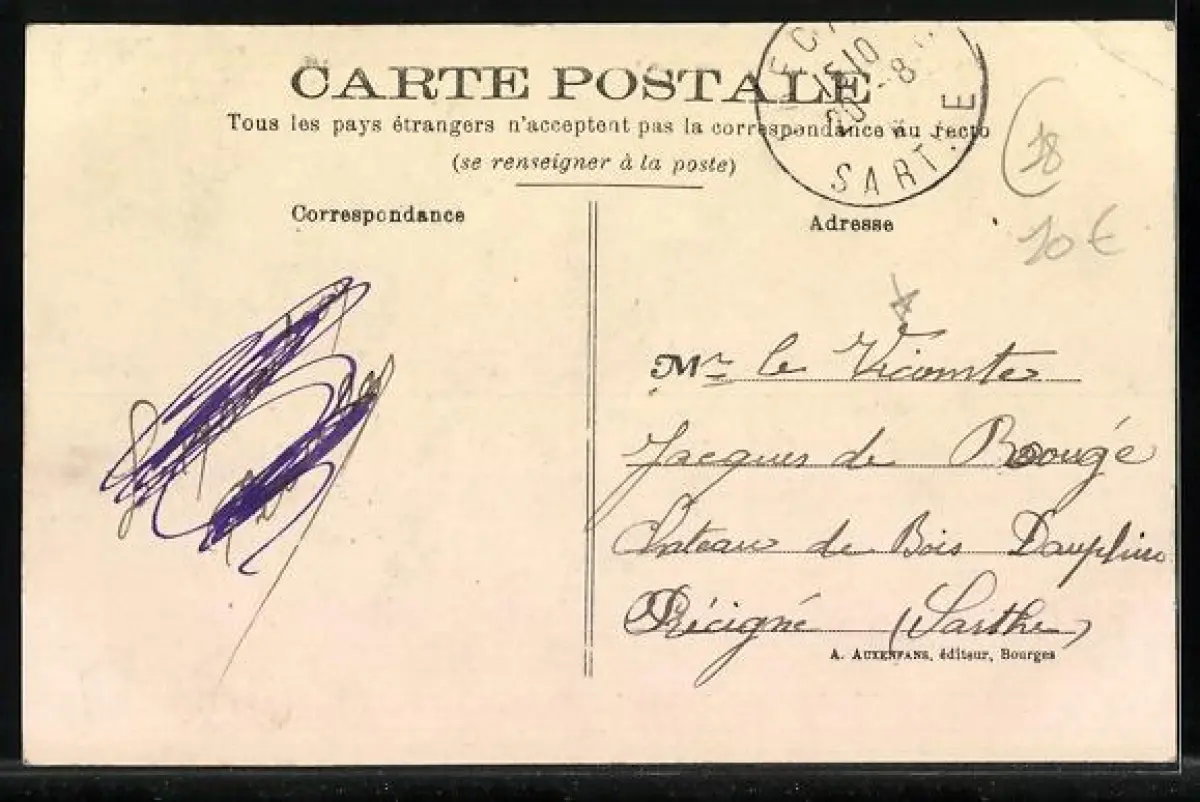 CARTE POSTALE
Tous les pays étrangers n'acceptent pas la correspondance au recto
(se renseigner à la poste)
Correspondance
Adresse
SARTHE
18
10 €
Mr le Vicomte
Jacques de Rougé
Chateau de Bois Dauphin
Précigné (Sarthe)
A. AUXENFANS, éditeur, Bourges